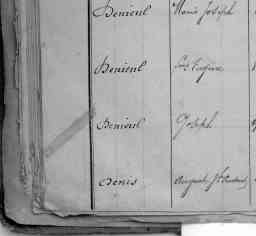 Denieul Marie Joseph
Denieul Eugène
Denieul Joseph
Denis Auguste